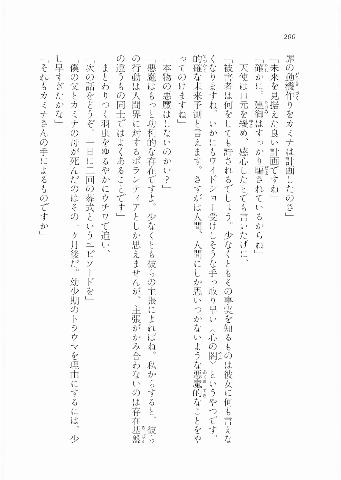 206
罪の動機作りをカミナは計画したのさ」
「未来を見据えた良い計画ですね」
「確かに。連御はすっかり騙されているからね」
天使は口元を緩め、感心したとでも言いたげに、
「被害者は何をしても許されるでしょう。少なくともその事実を知るものは彼女に何も言えな
くなりますね。いかにもワイドショー受けしそうな手っ取り早い〈心の闇〉というやつです。
的確な未来予測と言えます。さすがは人間、人間にしか思いつかないような悪魔的なことをや
ってのけますね」
「本物の悪魔はしないのかい？」
「悪魔はもっと功利的な存在ですよ。少なくとも彼らの主張によれば。私からすると、彼ら
の行動は人間界に対するボランティアとしか思えませんが、主張がかみ合わないのは存在基盤
の違うもの同士ではよくあることです」
まとわりつく羽虫をゆるやかにウチワで追い、
「次の話をどうぞ。一日に二回の葬式というエピソードを」
「僕の父とカミナの母が死んだのはその一ヶ月後だ。幼少期のトラウマを理由にするには、少
し早すぎたかな」
「それもカミナさんの手によるものですか」